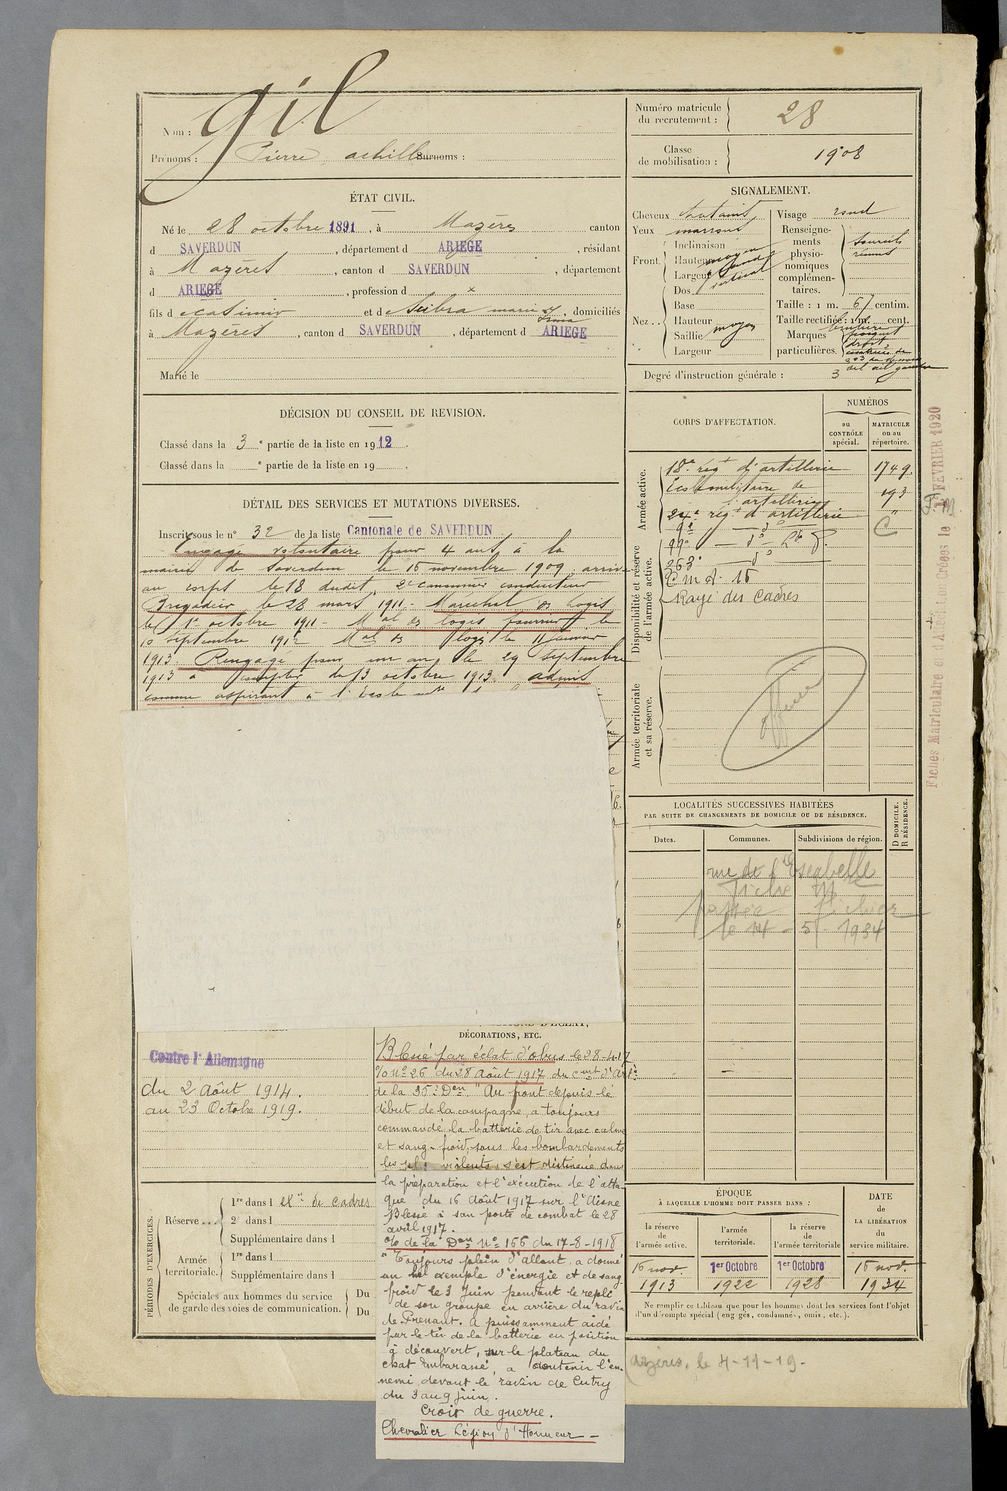 Nom : Gil
Prénoms : Pierre achille Surnoms :
Numéro matricule du recrutement : 28
Classe de mobilisation : 1908
ÉTAT CIVIL.
Né le 28 octobre 1891, à Mazères canton
d SAVERDUN, département d ARIEGE, résidant
à Mazères, canton d SAVERDUN, département
d ARIEGE, profession d x
fils de casimir et de Subra marie domiciliés
à Mazères, canton d SAVERDUN, département d ARIEGE
Marié le
SIGNALEMENT.
Cheveux chatains Visage rond
Yeux marrons
Front. Inclinaison
Hauteur moyen
Largeur grand
Nez .. Dos vertical
Base
Hauteur
Saillie moyen
Largeur
Renseignements physionomiques complémentaires. sourcils réunis
Taille : 1 m. 67 centim.
Taille rectifiée : 1 m. cent.
Marques particulières.
Degré d'instruction générale : 3
DÉCISION DU CONSEIL DE REVISION.
Classé dans la 3e partie de la liste en 1912.
Classé dans la e partie de la liste en 19 .
DÉTAIL DES SERVICES ET MUTATIONS DIVERSES.
Inscrit sous le n° 32 de la liste Cantonale de SAVERDUN
Engagé volontaire pour 4 ans à la
mairie de Saverdun le 16 novembre 1909 arrivé
au corps le 18 dudit, 2e cannonier conducteur
Brigadier le 28 mars 1911 - Maréchal des logis
le 1er octobre 1911 - Mal des logis fourrier le
10 septembre 1912 Mal des logis le 11 janvier
1913. Rengagé pour un an le 29 septembre
1913 à compter du 13 octobre 1913. admis
comme aspirant à l'école
CORPS D'AFFECTATION.
NUMÉROS
au CONTRÔLE spécial.
MATRICULE ou au répertoire.
Armée active.
18e régt d'artillerie 1749
Ecole militaire de 193
l'artillerie
24e régt d'artillerie "
Disponibilité et réserve de l'armée active.
9e - do - C
99e - do -
263e - do
C m A. 16
Rayé des Cadres
Armée territoriale et sa réserve.
officier
Fiches Matriculaire et d'Affectation Créées le FEVRIER 1920
LOCALITÉS SUCCESSIVES HABITÉES
PAR SUITE DE CHANGEMENTS DE DOMICILE OU DE RÉSIDENCE.
Dates.
Communes.
Subdivisions de région.
D DOMICILE. R RÉSIDENCE.
rue de l'Escabelle
Fiche M
passée fichier
le 14 - 5 - 1934
Contre l'Allemagne
du 2 Août 1914.
au 23 Octobre 1919.
DÉCORATIONS, ETC.
Blessé par éclat d'obus le 28-4-17
o/o n° 26 du 28 Août 1917 du Cmt d'Artie
de la 35e Don. "Au front depuis le
début de la campagne, a toujours
commandé la batterie de tir avec calme
et sang-froid sous les bombardements
les plus violents, s'est distingué dans
la préparation et l'exécution de l'atta-
que du 16 Août 1917 sur l'Aisne
Blessé à son poste de combat le 28
avril 1917.
o/o de la Don n° 166 du 17-8-1918
"Toujours plein d'allant, a donné
un bel exemple d'énergie et de sang
froid le 3 Juin pendant le repli
de son groupe en arrière du ravin
de Frenant. A puissamment aidé
par le tir de la batterie en position
à découvert, sur le plateau du
chat Embarassé, a contenir l'en-
nemi devant le ravin de Cutry
du 3 au 9 juin.
Croix de guerre.
Chevalier Légion d'Honneur -
PÉRIODES D'EXERCICES.
Réserve .... 1re dans l El. de Cadres
2e dans l
Supplémentaire dans l
Armée territoriale. 1re dans l
Supplémentaire dans l
Spéciales aux hommes du service de garde des voies de communication. Du
Du
ÉPOQUE
À LAQUELLE L'HOMME DOIT PASSER DANS :
la réserve de l'armée active.
l'armée territoriale.
la réserve de l'armée territoriale
DATE DE LA LIBÉRATION du service militaire.
16 nov. 1913
1er Octobre 1922
1er Octobre 1928
16 nov. 1934
Ne remplir ce tableau que pour les hommes dont les services font l'objet
d'un décompte spécial (engagés, condamnés, omis, etc.).
Mazères, le 4-11-19-